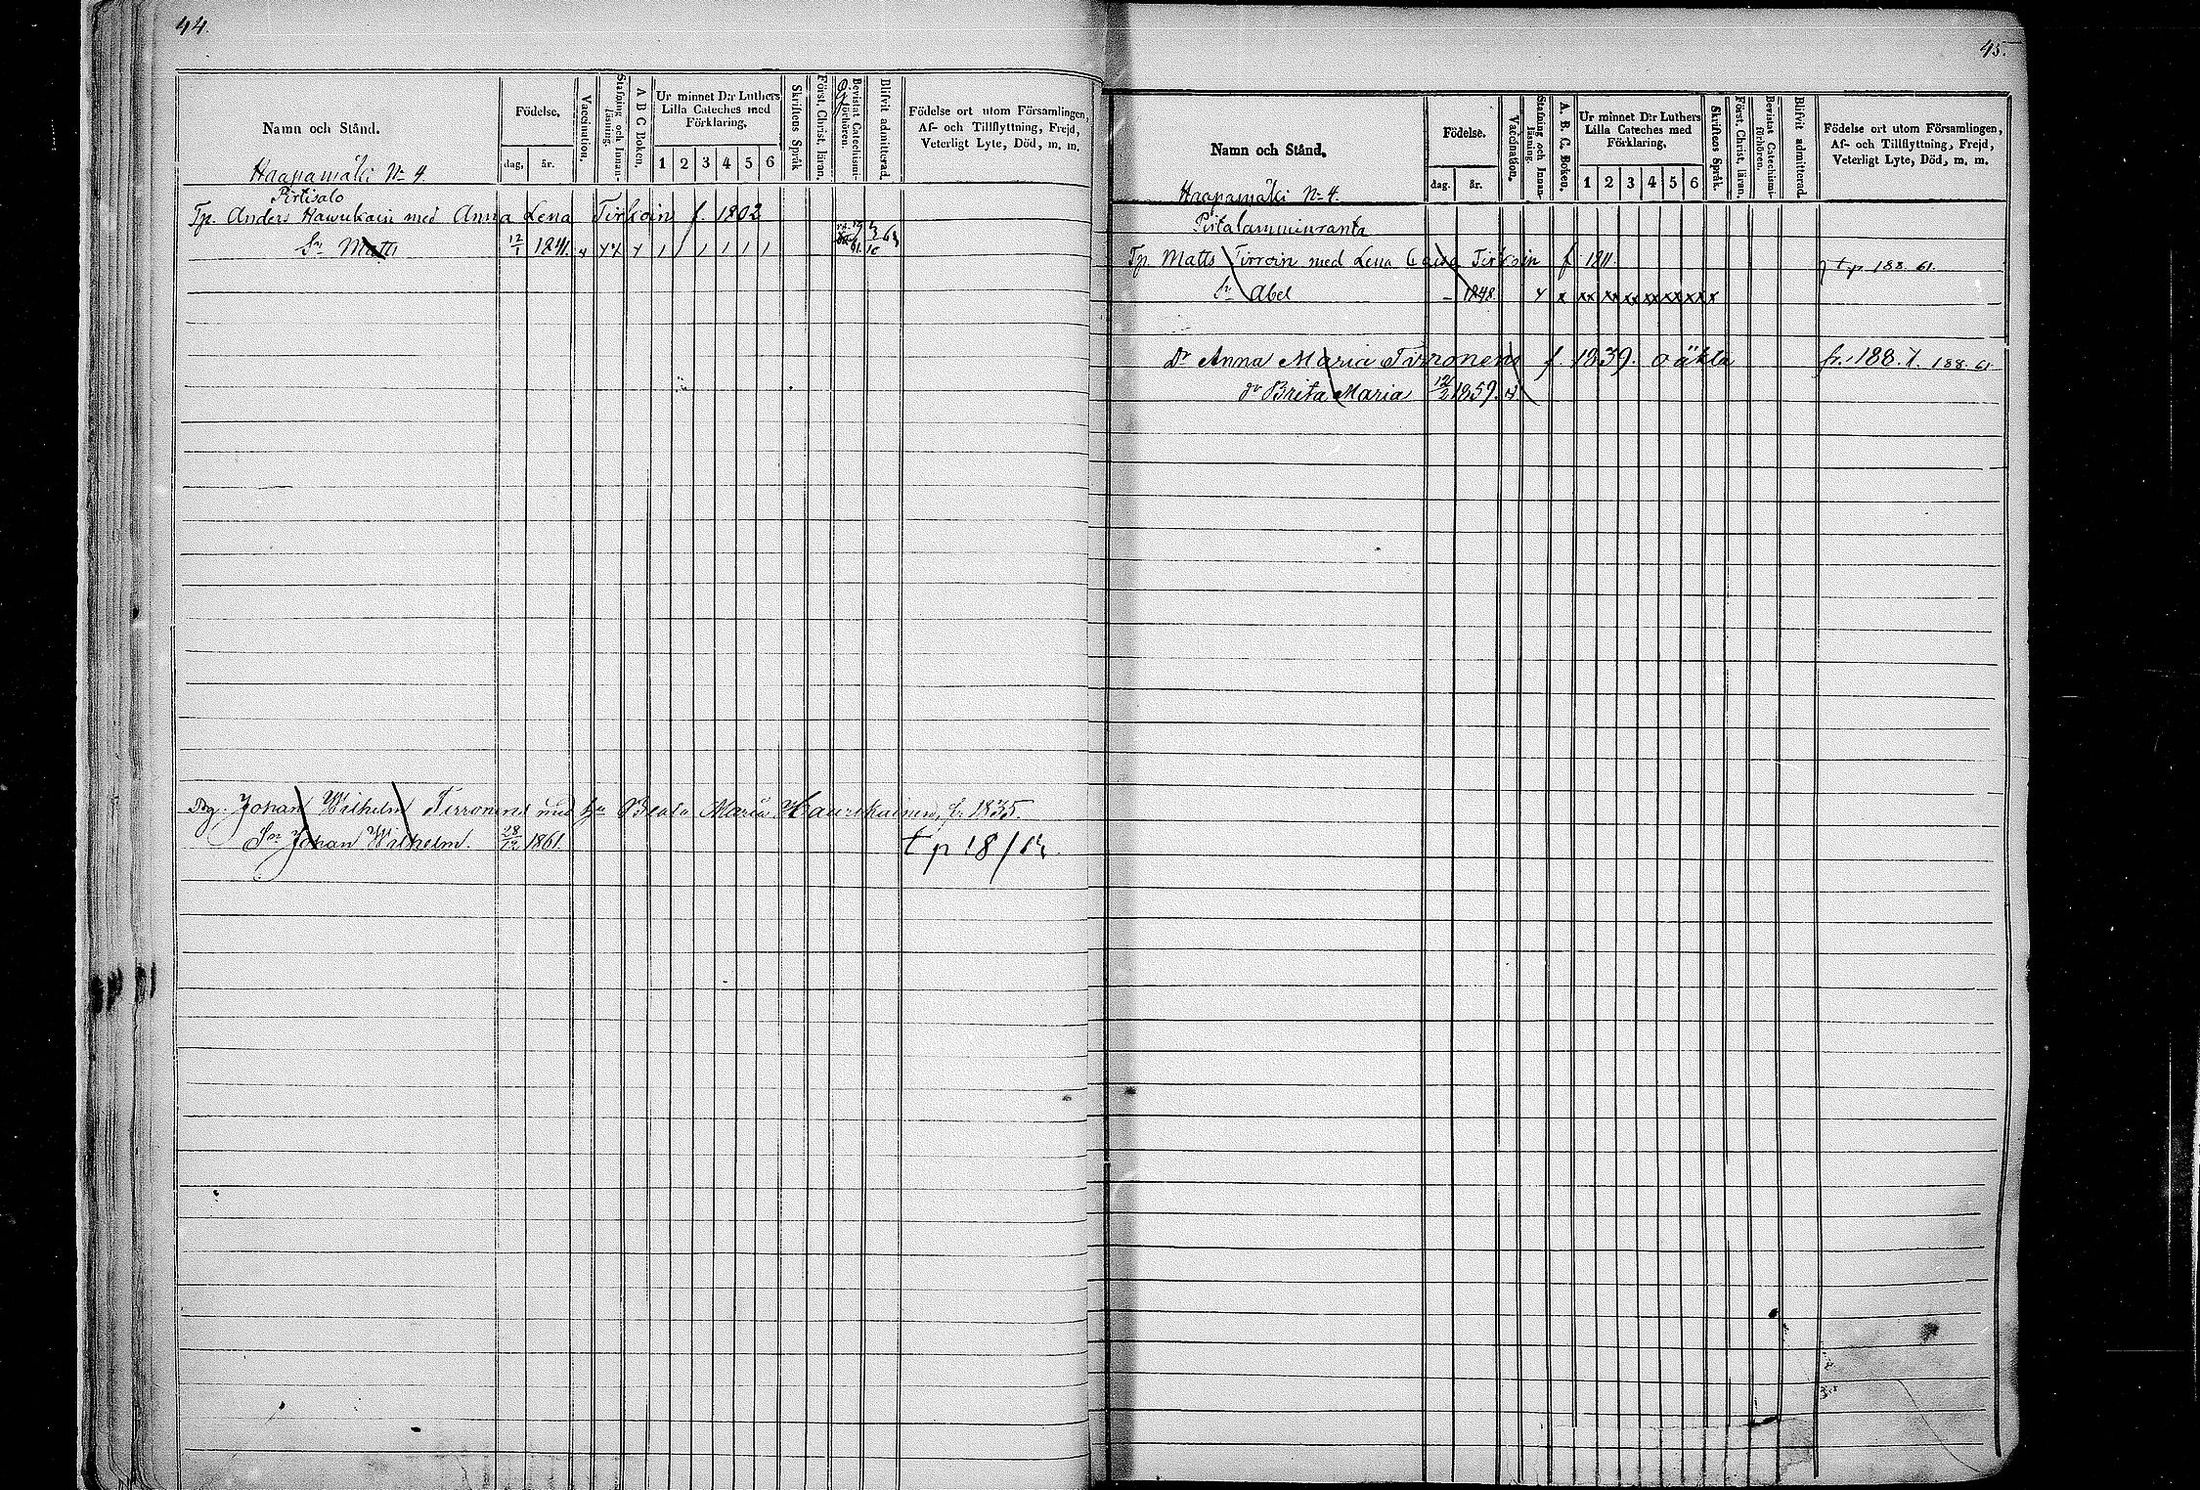 44.
Namn och Stånd.
Födelse.
dag. år.
Vaccination.
Stafning och Innanläsning.
A B C Boken.
Ur minnet D:r Luthers Lilla Cateches med Förklaring.
1 2 3 4 5 6
Skriftens Språk
Först. Christ. läran.
Bevistat Catechismiförhören.
Blifvit admitterad.
Födelse ort utom Församlingen, Af- och Tillflyttning, Frejd, Veterligt Lyte, Död, m. m.
Haapamäki No 4.
Pirtisalo
Tp. Anders Haurukain med Anna Lena Tirkoin f. 1802
Sn Matts 12/1 1841.
Johan Wilhelm Tirronen med hu Beata Maria Haurukainen, f. 1835.
Sn Johan Wilhelm. 28/12 1861.
t p 18/
45.
Namn och Stånd.
Födelse.
dag. år.
Vaccination.
Stafning och Innanläsning.
A. B. C. Boken.
Ur minnet D:r Luthers Lilla Cateches med Förklaring.
1 2 3 4 5 6
Skriftens Språk.
Först. Christ. läran.
Bevistat Catechismiförhören.
Blifvit admitterad
Födelse ort utom Församlingen, Af- och Tillflyttning, Frejd, Veterligt Lyte, Död, m. m.
Haapamäki No 4.
Pirtalamminranta
Tp. Matts Tirroin med Lena Caisa Tirkoin f 1811. t p 188. 61.
Sn Abel - 1848.
Dr Anna Maria Tirronen f. 1839. oäkta fr. 188. t. 188. 61.
dr Brita Maria 12/2 1859.